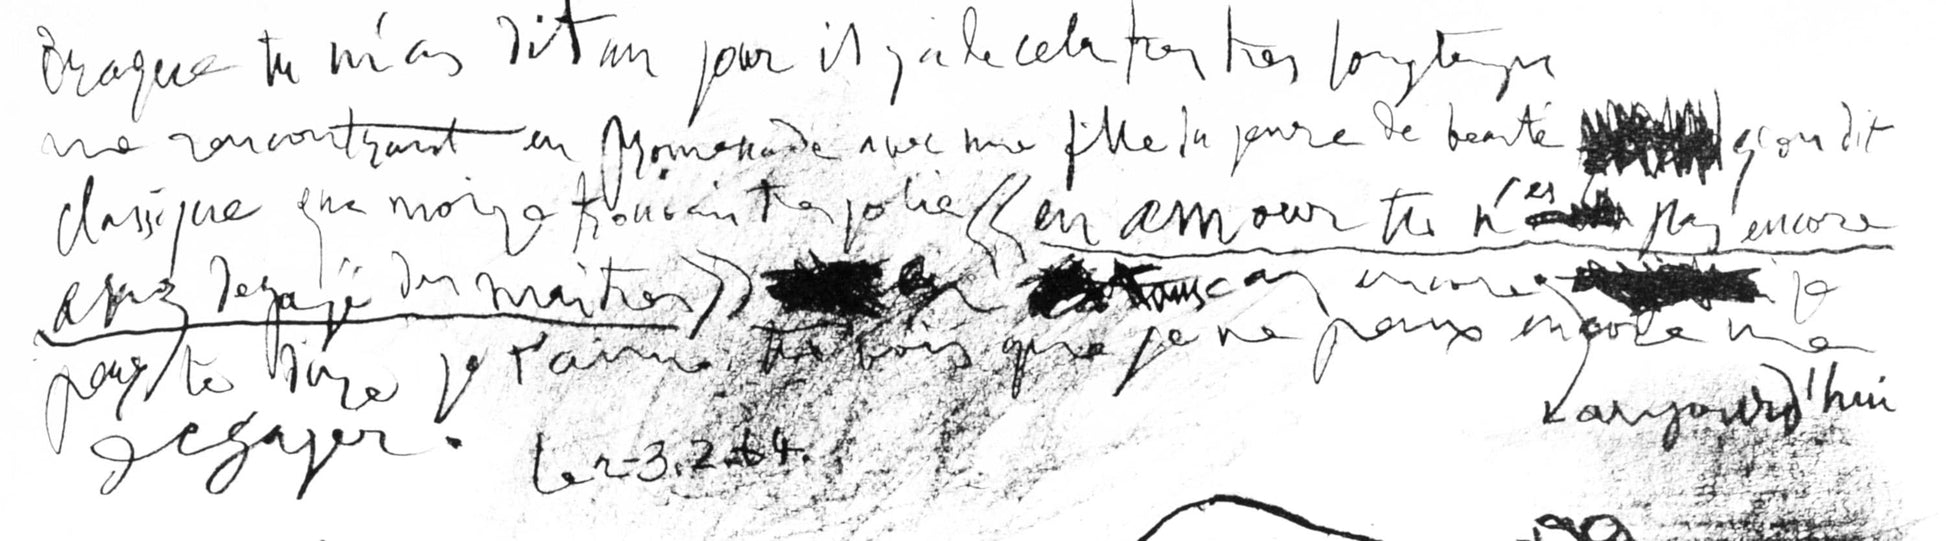 Braque tu m'as dit un jour il y a de cela très très longtemps
me rencontrant en promenade avec une fille du genre de beauté q'on dit
classique que moi je trouvais tres jolie « en amour tu n'es pas encore
assez degagé des maitres » encore je
peux te dire je t'aime. tu vois que je ne peux encore me
aujourd'hui
dégager.
Le 2-3.2.64.